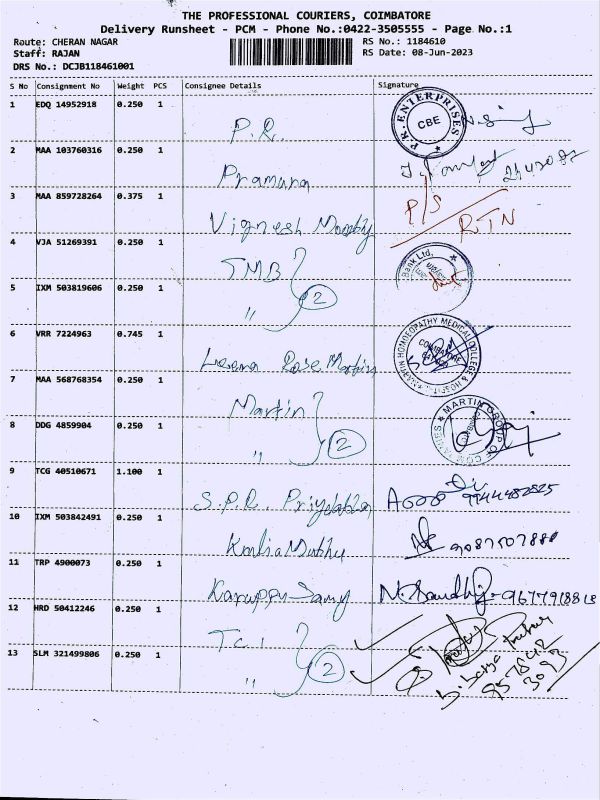 THE PROFESSIONAL COURIERS, COIMBATORE
Delivery Runsheet - PCM - Phone No.:0422-3505555 - Page No.:1
Route: CHERAN NAGAR RS No.: 1184610
Staff: RAJAN RS Date: 08-Jun-2023
DRS No.: DCJB118461001
S No Consignment No Weight PCS Consignee Details Signature
1 EDQ 14952918 0.250 1
P.R. P.R. ENTERPRISES CBE
2 MAA 103760316 0.250 1
Pramuna
3 MAA 859728264 0.375 1 P/S
Vignesh RTN
4 VJA 51269391 0.250 1 Bank Ltd,
TMB
5 IXM 503819606 0.250 1 2
"
6 VRR 7224963 0.745 1 HOMOEOPATHY MEDICAL COLLEGE & HOSPIT
Leema Rose Martin
7 MAA 568768354 0.250 1
Martin MARTIN GROUP OF COMPANIES
8 DDG 4859904 0.250 1
" 2
9 TCG 40510671 1.100 1
S.P.R.
10 IXM 503842491 0.250 1
KaliaMuthu
11 TRP 4900073 0.250 1
Karuppu Samy
12 HRD 50412246 0.250 1
T.C.I
13 SLM 321499806 0.250 1 2
"